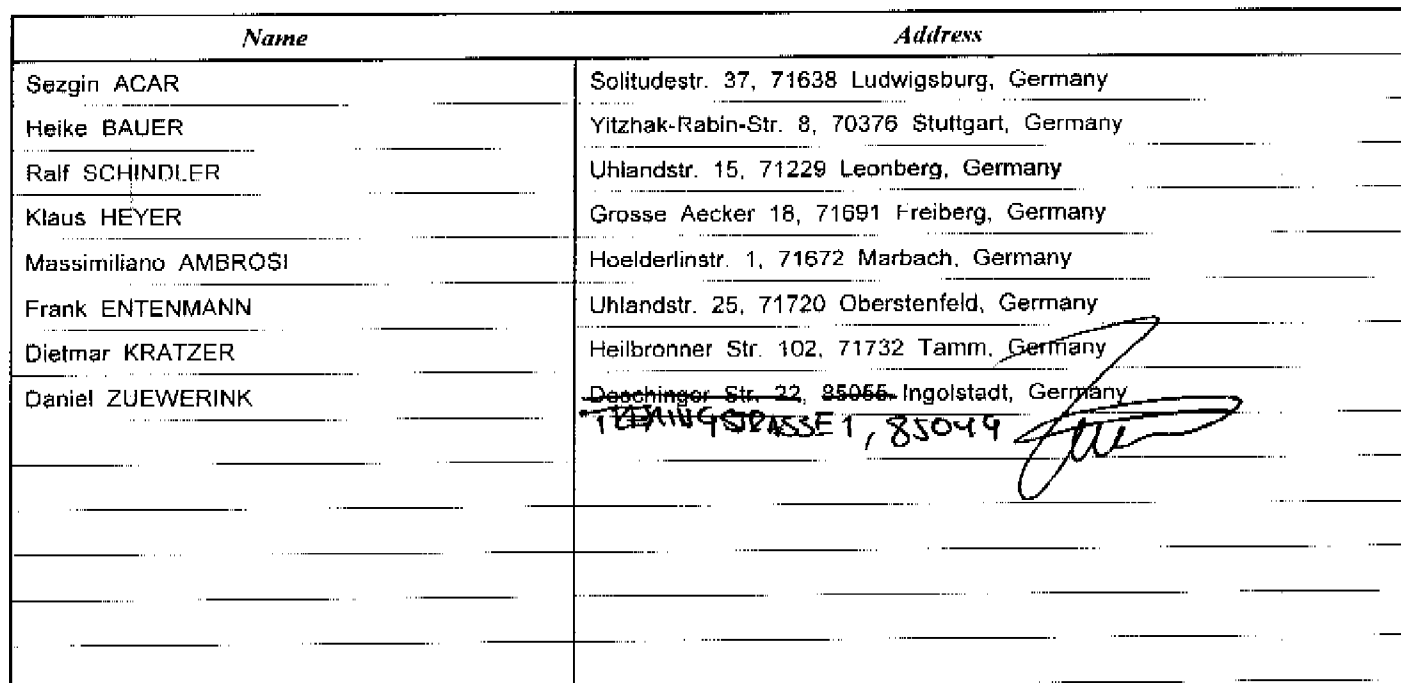 Name Address
Sezgin ACAR Solitudestr. 37, 71638 Ludwigsburg, Germany
Heike BAUER Yitzhak-Rabin-Str. 8, 70376 Stuttgart, Germany
Ralf SCHINDLER Uhlandstr. 15, 71229 Leonberg, Germany
Klaus HEYER Grosse Aecker 18, 71691 Freiberg, Germany
Massimiliano AMBROSI Hoelderlinstr. 1, 71672 Marbach, Germany
Frank ENTENMANN Uhlandstr. 25, 71720 Oberstenfeld, Germany
Dietmar KRATZER Heilbronner Str. 102, 71732 Tamm, Germany
Daniel ZUEWERINK Deschinger Str. 22, 85055 Ingolstadt, Germany
1, 85049